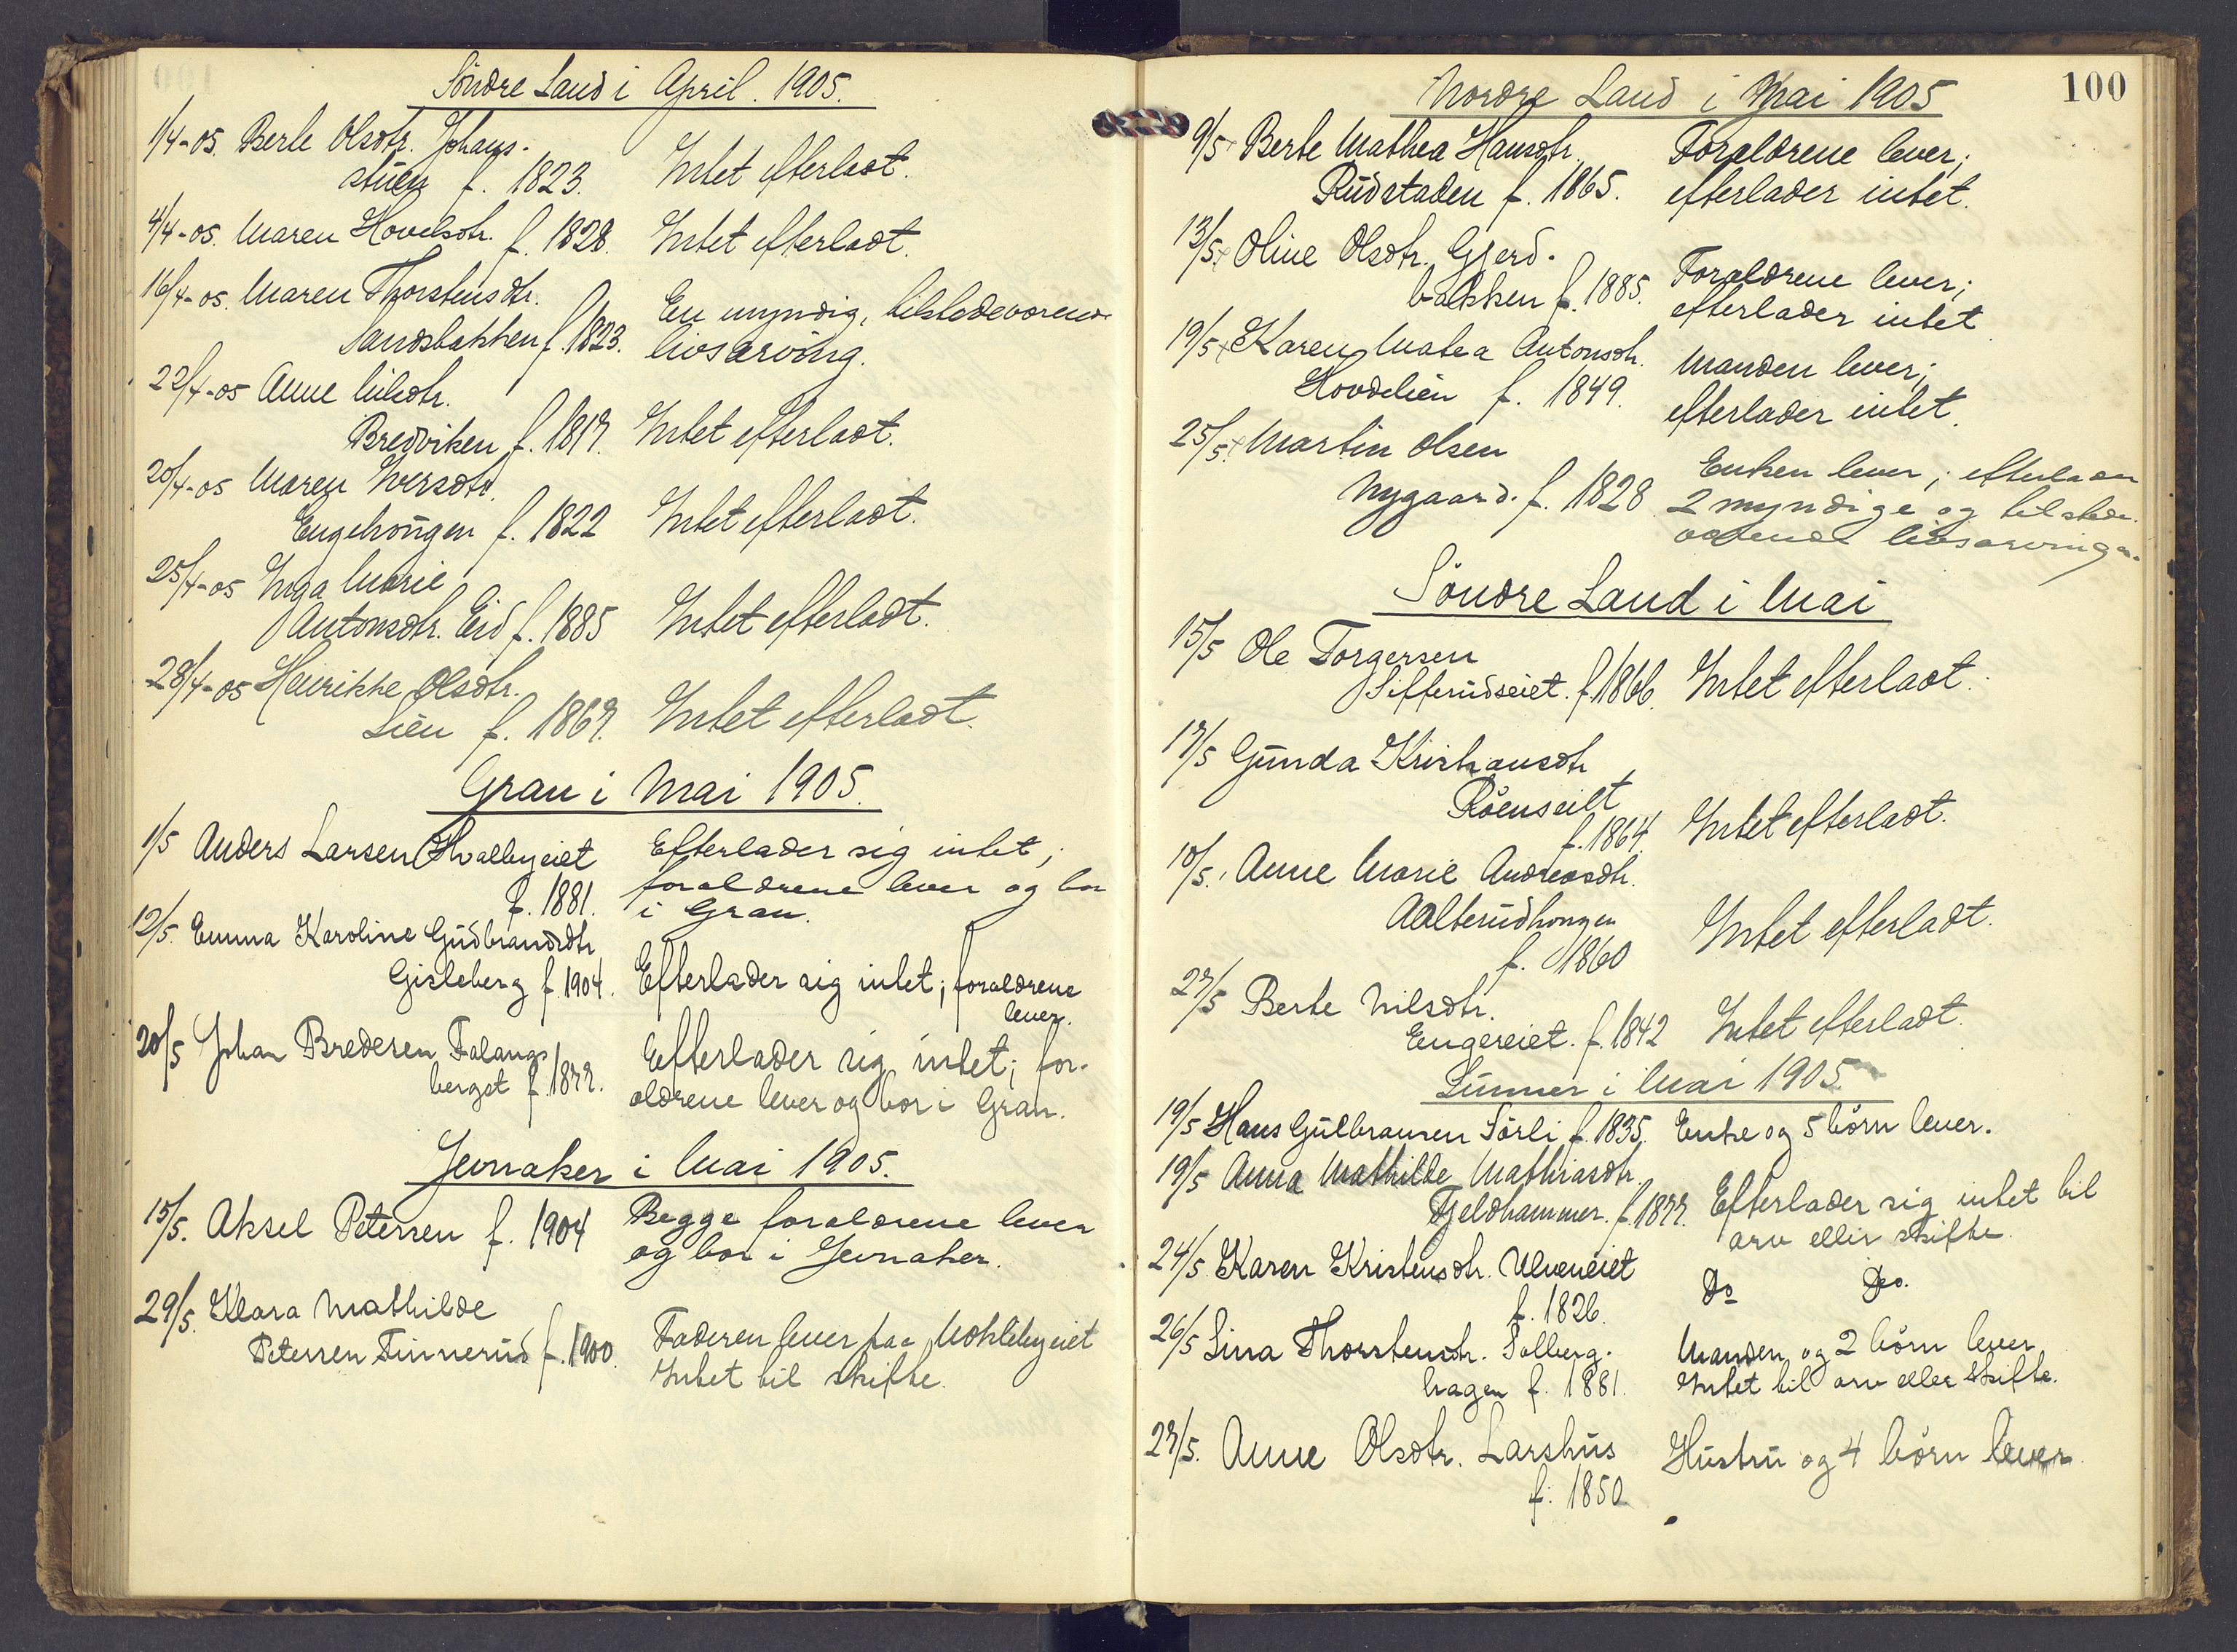 Søndre Land i April. 1905.
1/4-05. Berte Olsdtr. Johans-
stuen f. 1823. Intet efterladt.
4/4-05. Maren Hovelsdtr. f. 1828. Intet efterladt.
16/4-05. Maren Thorstensdtr. En myndig, tilstedeværende
Sandsbakken f. 1823. livsarving.
22/4-05 Anne Nilsdtr.
Bredviken f. 1817. Intet efterladt.
20/4-05 Maren Iversdtr.
Engehaugen f. 1822 Intet efterladt.
25/4-05 Inga Marie
Antonsdtr. Eid f. 1885 Intet efterladt.
28/4-05 Henrikke Olsdtr.
Lien f. 1867. Intet efterladt.
Gran i Mai 1905.
1/5 Anders Larsen Hvalbyeiet Efterlader sig intet;
f. 1881. forældrene lever og bor
i Gran.
12/5. Emma Karoline Gudbrandsdtr
Gisleberg f. 1904. Efterlader sig intet; forældrene
lever.
20/5 Johan Bredesen Falangs Efterlader sig intet; for-
berget f. 1877. ældrene lever og bor i Gran.
Jevnaker i Mai 1905.
15/5. Aksel Petersen f. 1904 Begge forældrene lever
og bor i Jevnaker.
29/5. Klara Mathilde
Petersen Finnerud f. 1900. Faderen lever paa Moklebyeiet
Intet til skifte.
100
Nordre Land i Mai 1905
9/5 Berte Mathea Hansdtr. Forældrene lever;
Rudstaden f. 1865. efterlader intet.
13/5 Oline Olsdtr. Gjerd- Forældrene lever;
bakken f. 1885. efterlader intet
19/5 Karen Matea Antonsdtr. Manden lever;
Hovdelien f. 1849. efterlader intet.
25/5. Martin Olsen Enken lever; efterlader
Nygaard. f. 1828 2 myndige og tilstede-
værende livsarvinger.
Søndre Land i Mai
15/5 Ole Torgersen
Sifferudseiet. f. 1866. Intet efterladt.
17/5 Gunda Kristiansdtr
Røenseiet
f. 1864. Intet efterladt.
18/5. Anne Marie Andreasdtr.
Aalterudhaugen Intet efterladt.
f. 1860
27/5 Berte Nilsdtr.
Engereiet. f. 1842 Intet efterladt.
Lunner i Mai 1905
19/5 Hans Gulbransen Sørli f. 1835. Enke og 5 børn lever.
19/5 Anna Mathilde Mathiasdtr.
Fjeldhammer. f. 1877. Efterlader sig intet til
arv eller skifte.
24/5. Karen Kristensdtr. Ulveneiet Do Do.
f. 1826.
26/5 Lina Thorstensdtr. Solberg- Manden og 2 børn lever
hagen f. 1881. Intet til arv eller skifte.
27/5. Anne Olsdtr. Larshus Hustru og 4 børn lever
f. 1850